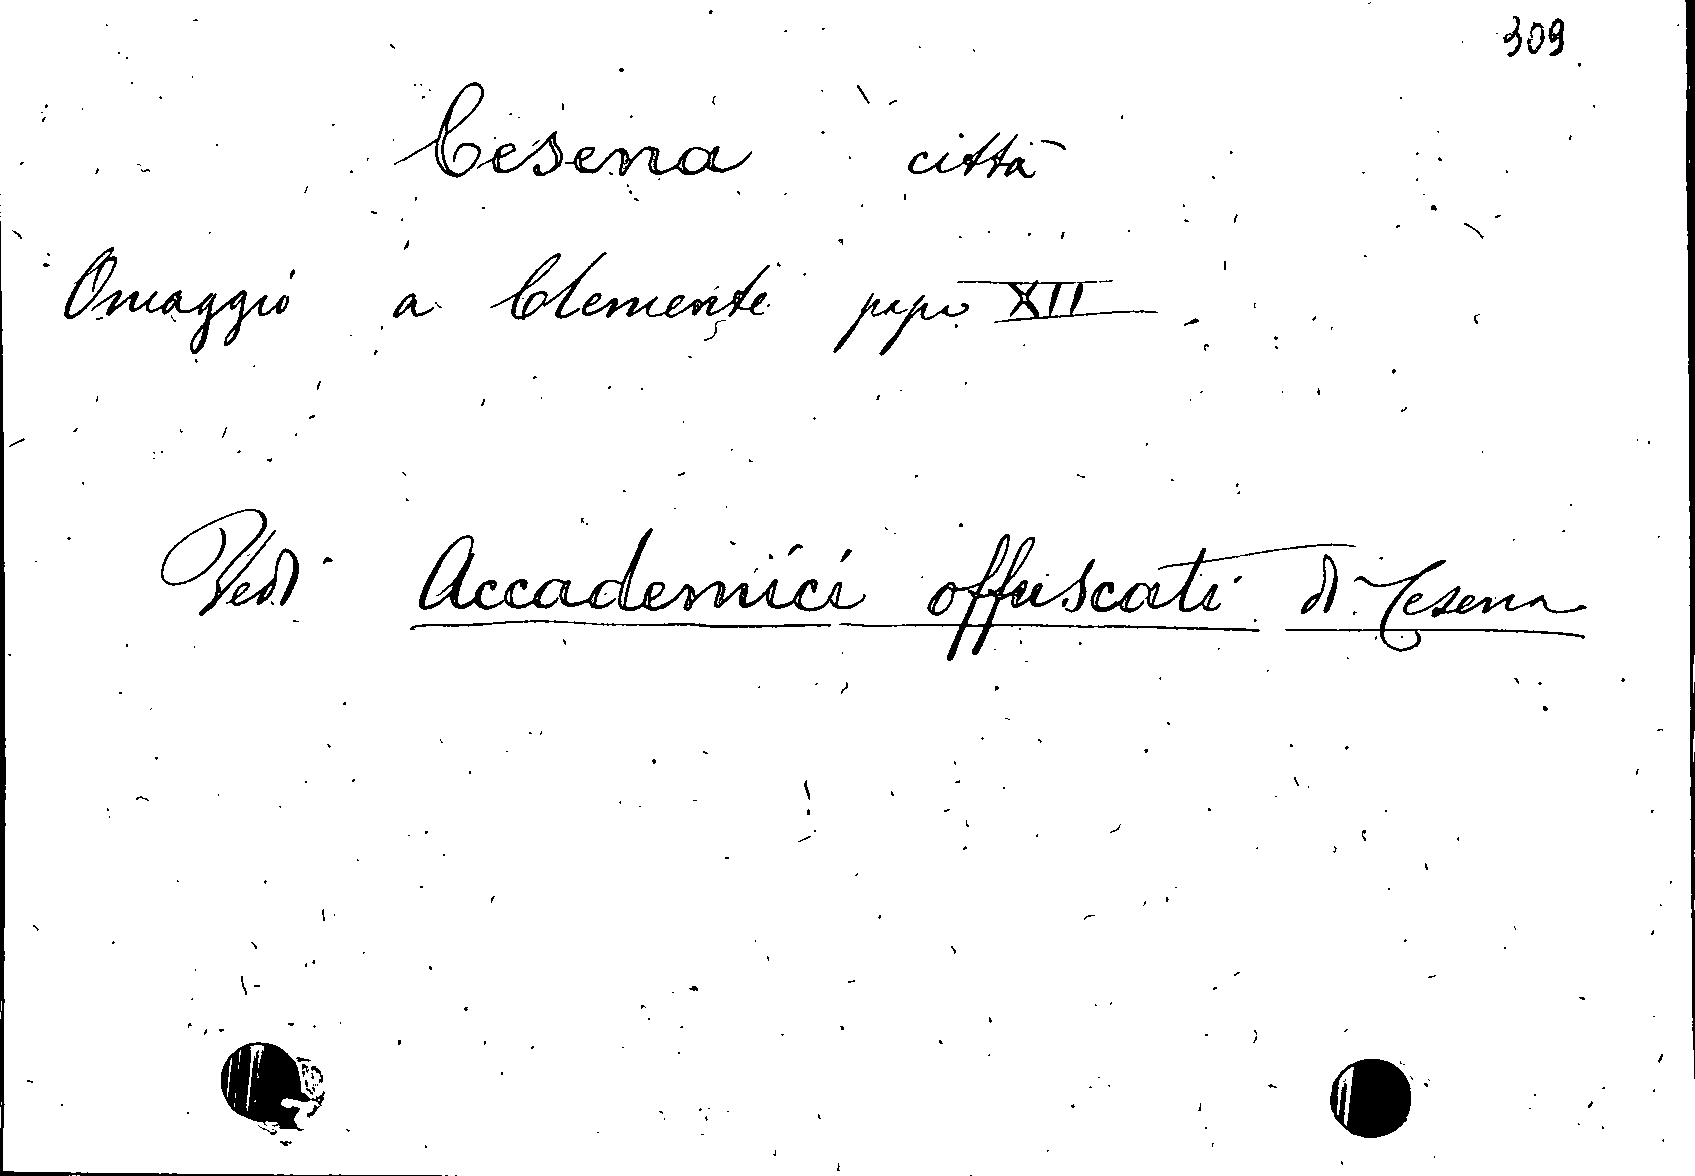 309
Cesena città
Omaggio a Clemente papa XII
Vedi Accademici offuscati di Cesena